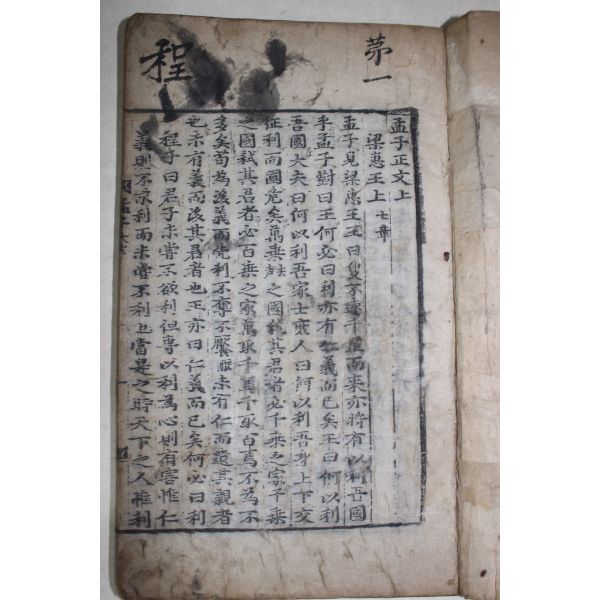 茅一
程
孟子正文上
梁惠王上 七章
孟子見梁惠王王曰叟不遠千里而來亦將有以利吾國
乎孟子對曰王何必曰利亦有仁義而已矣王曰何以利
吾國大夫曰何以利吾家士庶人曰何以利吾身上下交
征利而國危矣萬乘之國弑其君者必千乘之家千乘
之國弑其君者必百乘之家萬取千焉千取百焉不為不
多矣苟為後義而先利不奪不饜未有仁而遺其親者
也未有義而後其君者也王亦曰仁義而已矣何必曰利
程子曰君子未嘗不欲利但專以利為心則有害惟仁
義則不求利而未嘗不利也當是之時天下之人唯利